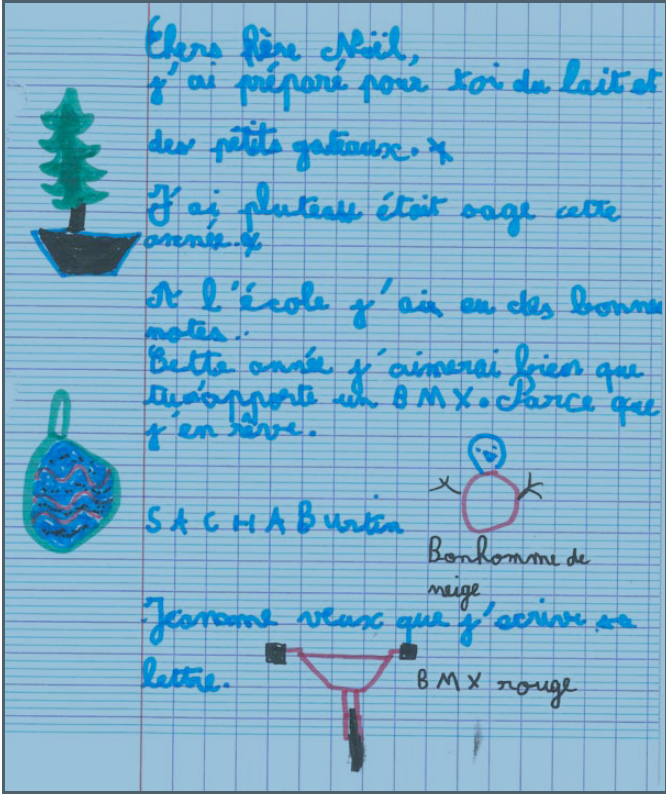 Chers Père Noël,
j'ai préparé pour toi du lait et
des petits gateaux.
J'ai plutead était sage cette
année.
A l'école j'ai eu des bonne
notes.
Cette année j'aimerai bien que
tu apporte un BMX. Parce que
j'en rêve.
SACHA Burtin
Bonhomme de
neige
Jeanane veux que j'écrive sa
lettre.
BMX rouge